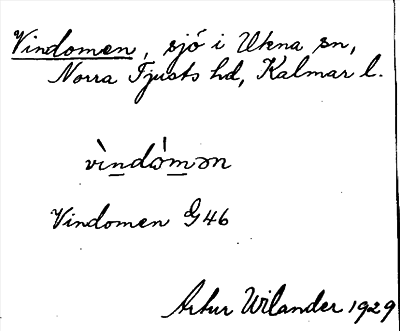 Vindomen, sjö i Ukna sn,
Norra Tjusts hd, Kalmar l.
vìndòmən
Vindomen G46
Artur Wilander 1929